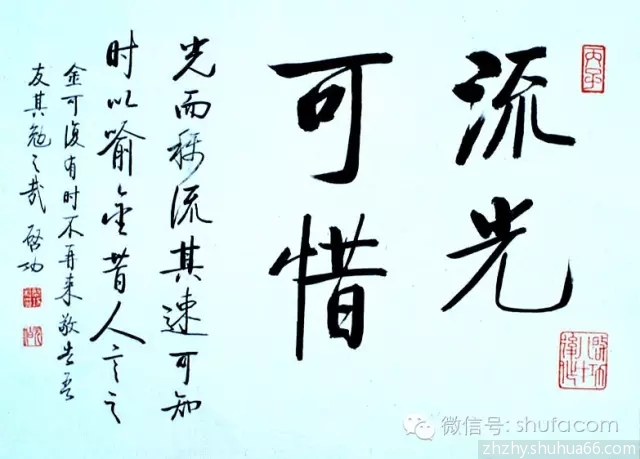 丙子
流光
可惜
光而称流其速可知
时以喻金昔人言之
金可复有时不再来敬告吾
友其勉之哉 启功
微信号: shufacom
zhzhy.shuhua66.com